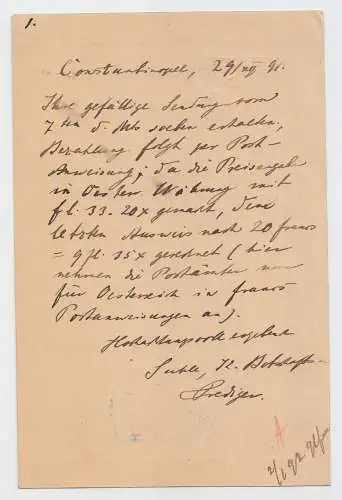 1.
Constantinopel, 29/XII 91.
Ihre gefällige Sendung vom
7ten d. Mts soeben erhalten,
Bezahlung folgt per Post-
Anweisung; da die Preisangabe
in Oester. Währung mit
fl. 33.20x gemacht, dem
letzten Ausweis nach 20 francs
= 9 fl. 35x gerechnet (hier
nehmen die Postämter nur
für Oesterreich in francs
Postanweisungen an).
Hochachtungsvoll ergebenst
Suhle, D. Botschafts-
Prediger.
A
2/1 92